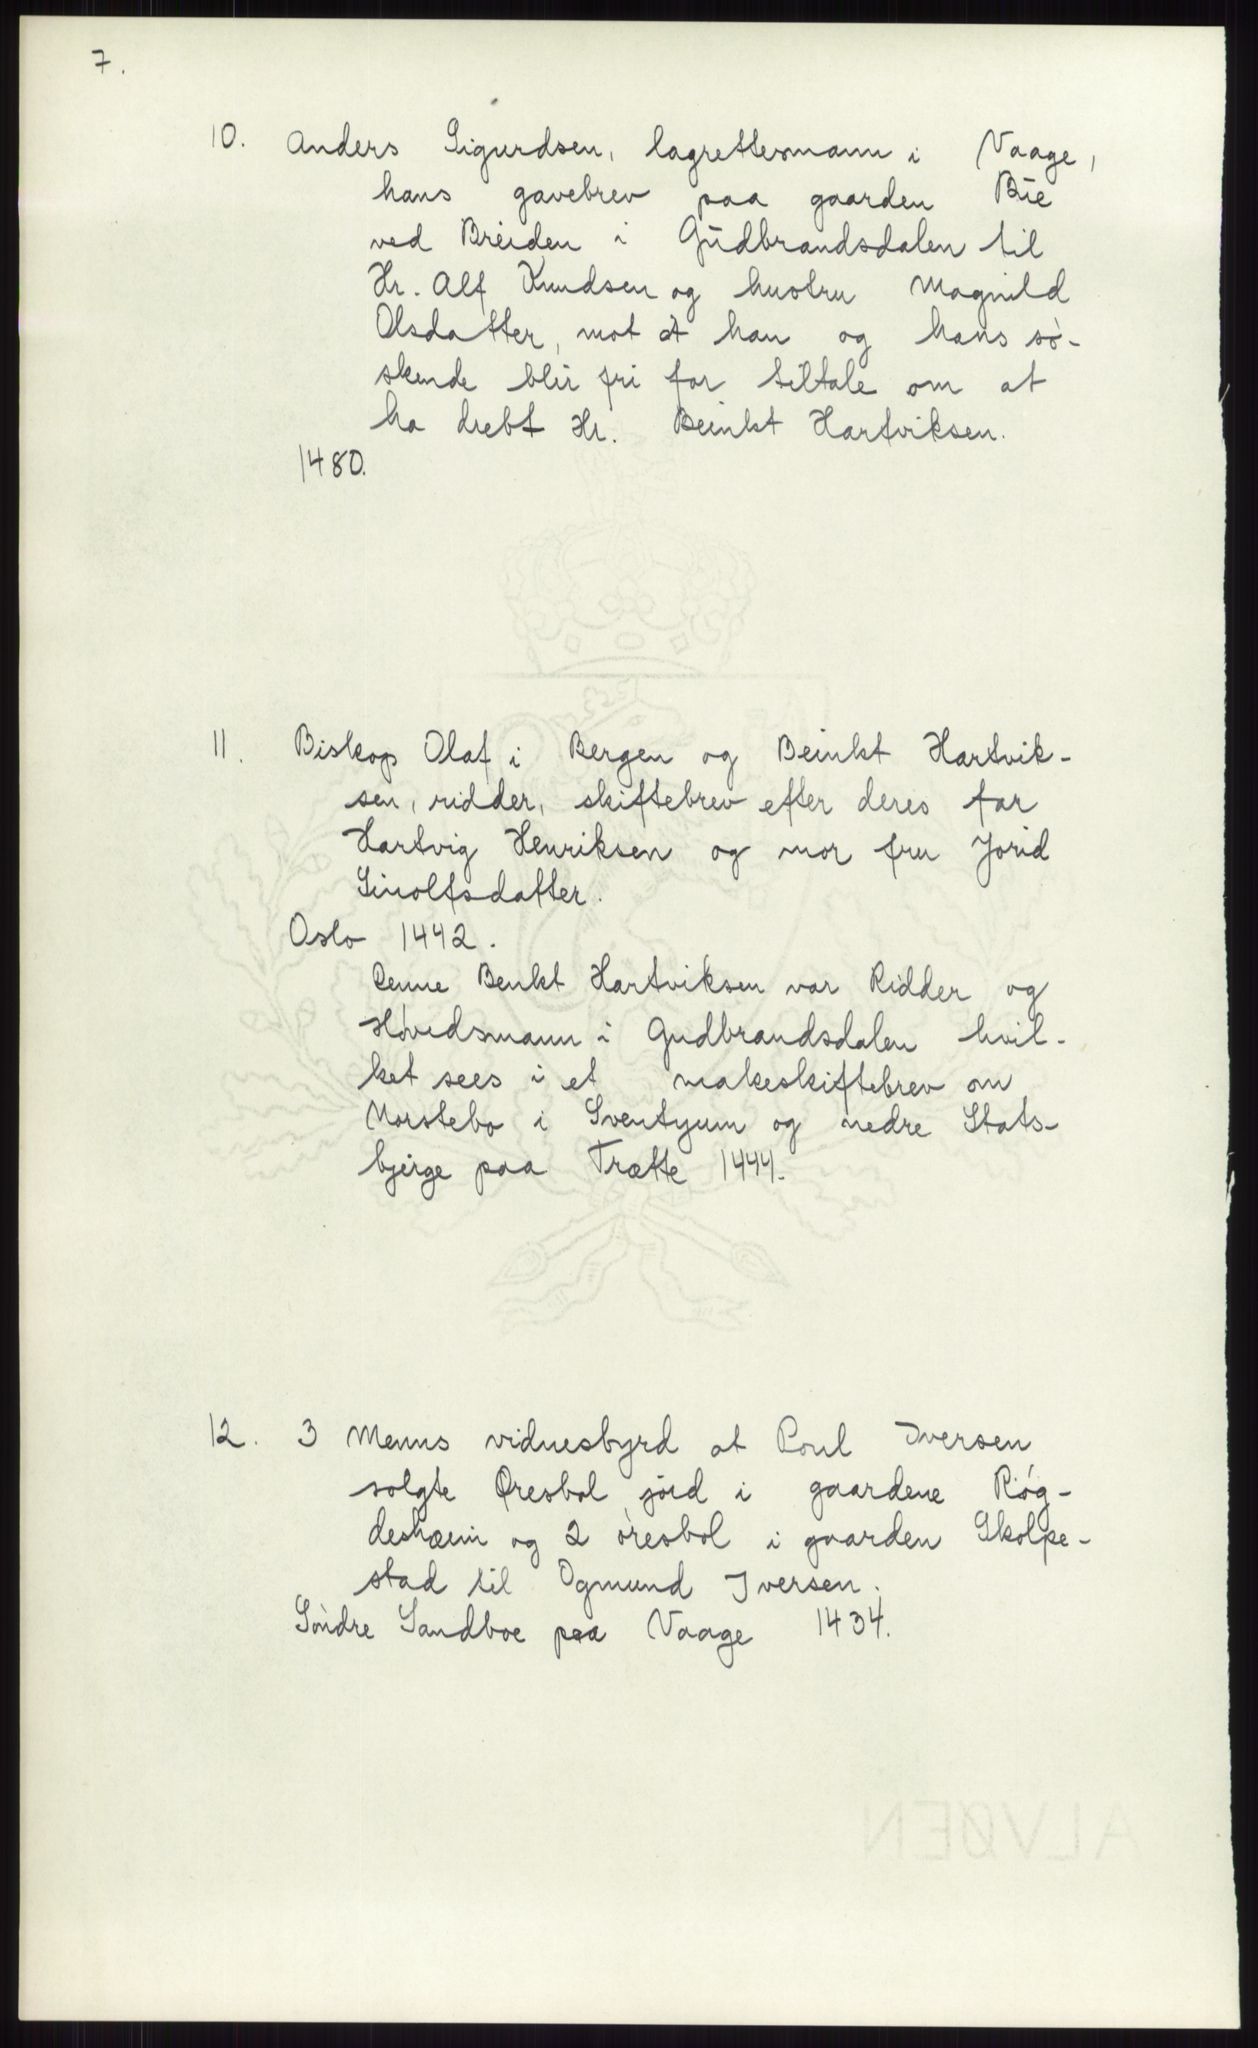 7.
10. Anders Sigurdsen, lagrettesmann i Vaage,
hans gavebrev paa gaarden Bie
ved Breiden i Gudbrandsdalen til
Hr. Alf Knudsen og hustru Magnild
Olsdatter, mot at han og hans sö-
skende blir fri for tiltale om at
ha drebt Hr. Beinkt Hartviksen.
1480.
11. Biskop Olaf i Bergen og Beinkt Hartvik-
sen, ridder, skiftebrev efter deres far
Hartvig Henriksen og mor fru Jorid
Sinolfsdatter.
Oslo 1442.
Denne Benkt Hartviksen var Ridder og
Hövedsmann i Gudbrandsdalen hvil-
ket sees i et makeskiftebrev om
Norstebo i Sventyum og nedre Stats-
bjerge paa Trætte 1444.
12. 3 Menns vidnesbyrd at Poul Iversen
solgte Øresbol jord i gaardene Røg-
deshæim og 2 öresbol i gaarden Skolpe-
stad til Ogmund Iversen.
Söndre Sandboe paa Vaage 1434.
ALVØEN